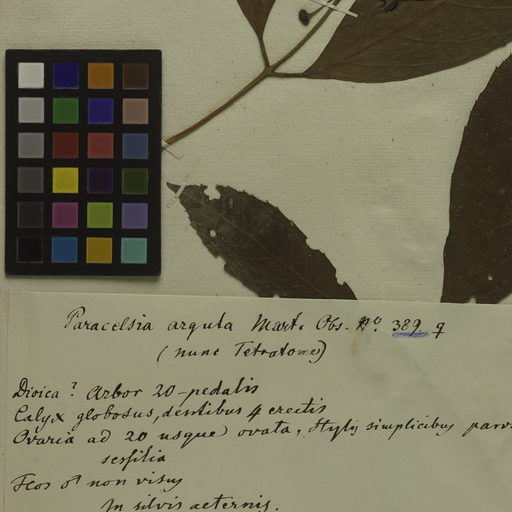 Paracelsia arguta Mart. Obs. No. 389 q
(nunc Tetratome)
Dioica? Arbor 20-pedalis
Calyx globosus, dentibus 4 erectis
Ovaria ad 20 usque ovata, Stylis simplicibus
sessilia
Flos ♂ non visus
In silvis aeternis.